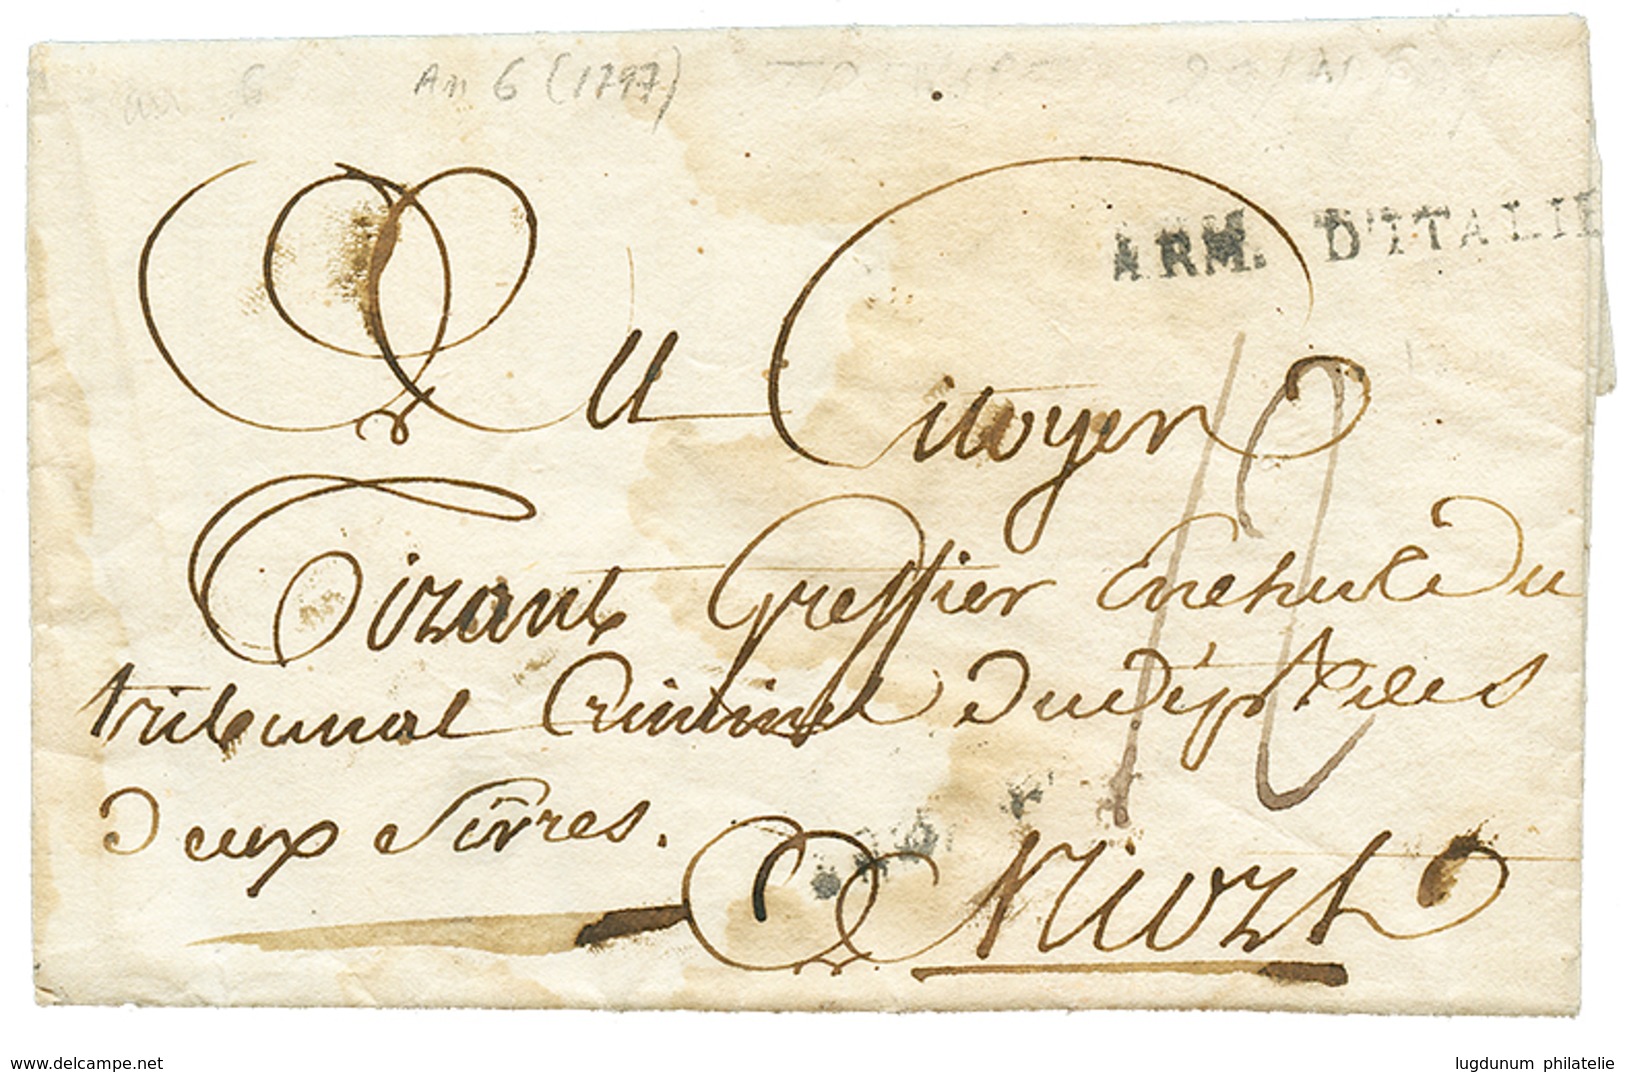 An 6 (1797)
ARM. D'ITALIE
Au Citoyen
Tizant Greffier En chef du
tribunal Criminel du dépt des
deux Sèvres.
Niort
www.delcampe.net
lugdunum philatelie